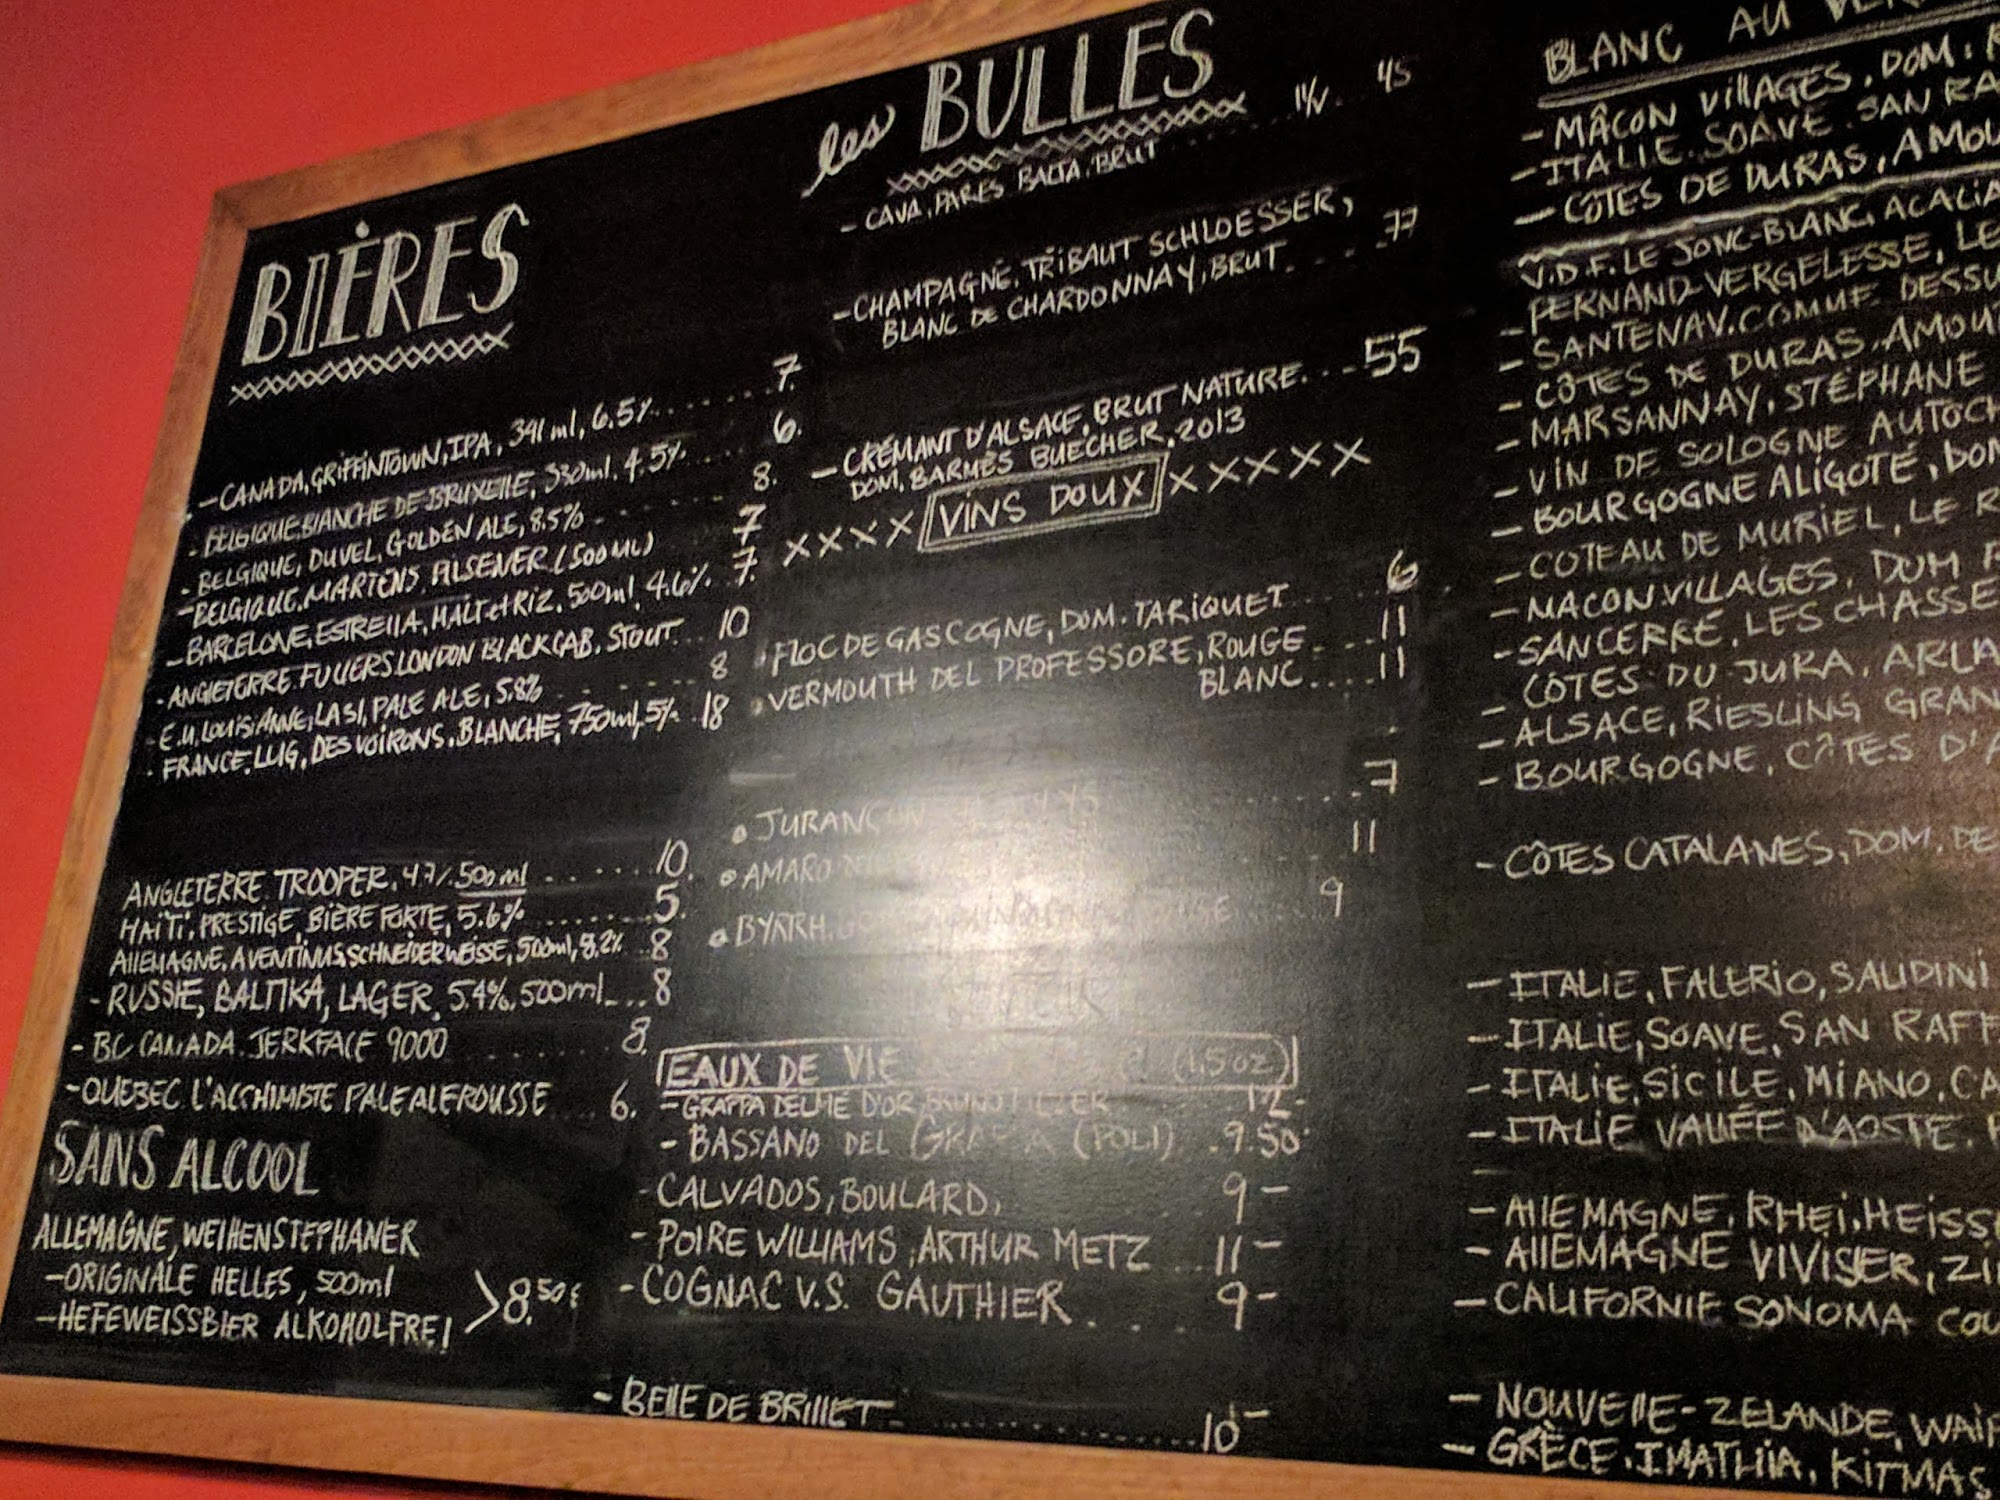 BIÈRES
- CANADA, GRIFFINTOWN, IPA, 341 ml, 6.5% ........ 7.
- BELGIQUE. BLANCHE DE BRUXELLE, 330ml, 4.5% .... 6.
- BELGIQUE, DUVEL, GOLDEN ALE, 8.5% ........ 8.
- BELGIQUE. MARTENS. PILSENER (500 ML) 7
- BARCELONE, ESTRELLA, MALT et RIZ, 500ml, 4.6% . 7.
- ANGLETERRE. FULLERS. LONDON BLACK CAB, STOUT ... 10
- E.U. LOUISIANNE, LA 31, PALE ALE, 5.8% ........ 8
- FRANCE, LUG, DES VOIRONS, BLANCHE, 750ml, 5% . 18
ANGLETERRE. TROOPER. 4.7%. 500 ml ...... 10.
HAÏTI, PRESTIGE, BIÈRE FORTE, 5.6% ........ 5.
ALLEMAGNE, AVENTINUS SCHNEIDER WEISSE, 500ml, 8.2% 8
- RUSSIE, BALTIKA, LAGER, 5.4%, 500ml ... 8
- BC CANADA. JERKFACE 9000 ........ 8.
- QUEBEC L'ALCHIMISTE PALE ALE ROUSSE .... 6.
SANS ALCOOL
ALLEMAGNE, WEIHENSTEPHANER
- ORIGINALE HELLES, 500ml
- HEFEWEISSBIER ALKOHOLFREI > 8.50$
les BULLES
- CAVA, PARES BALTA, BRUT ..... 11/V. . 45
- CHAMPAGNE, TRIBAUT SCHLOESSER,
BLANC DE CHARDONNAY, BRUT ... 77
- CRÉMANT D'ALSACE, BRUT NATURE ... 55
DOM, BARMÈS BUECHER, 2013
XXXX VINS DOUX XXXXX
• FLOC DE GASCOGNE, DOM. TARIQUET ..... 6
• VERMOUTH DEL PROFESSORE, ROUGE .... 11
BLANC .... 11
• JURANÇON ..... 7
• AMARO 11
• BYRRH 9
EAUX DE VIE (1,5 oz)
- GRAPPA 12-
- BASSANO DEL GRAPPA (POLI) . 9.50
- CALVADOS, BOULARD, 9 -
- POIRE WILLIAMS, ARTHUR METZ .. 11 -
- COGNAC V.S. GAUTHIER .... 9 -
- BELLE DE BRILLET ............ 10 -
BLANC AU
- MÂCON VILLAGES, DOM.
- ITALIE. SOAVE. SAN
- CÔTES DE DURAS,
V.D.F. LE JONC-BLANC, ACACIA
- PERNAND-VERGELESSE,
- SANTENAY. COMME
- CÔTES DE DURAS,
- MARSANNAY, STÉPHANE
- VIN DE SOLOGNE
- BOURGOGNE ALIGOTÉ,
- COTEAU DE MURIEL, LE
- MACON VILLAGES, DOM
- SANCERRE, LES
- CÔTES DU JURA,
- ALSACE, RIESLING
- BOURGOGNE, CÔTES
- CÔTES CATALANES, DOM. DE
- ITALIE, FALERIO, SALIDINI
- ITALIE, SOAVE, SAN
- ITALIE, SICILE, MIANO,
- ITALIE VALLÉE D'AOSTE.
- ALLEMAGNE,
- ALLEMAGNE
- CALIFORNIE SONOMA
- NOUVELLE-ZELANDE,
- GRÈCE,